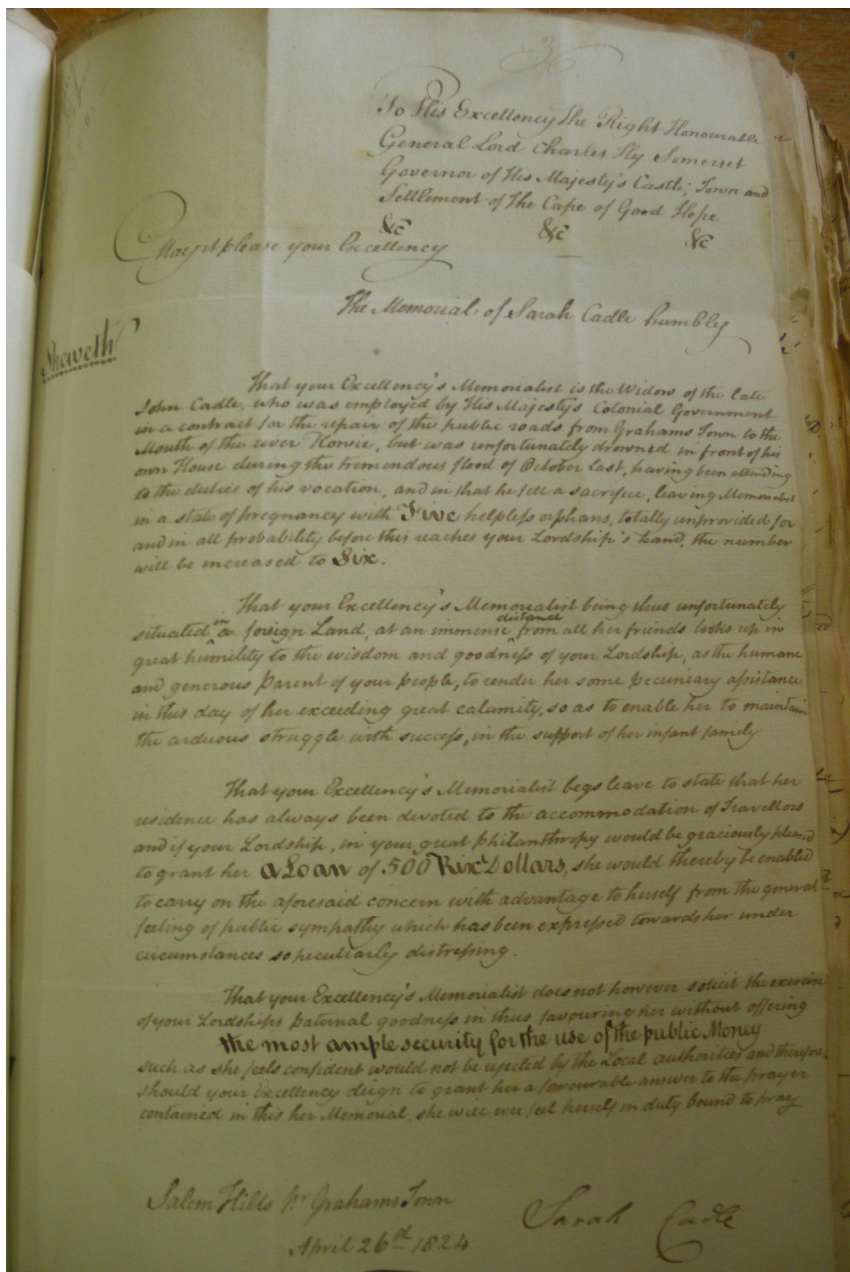 To His Excellency The Right Honourable
General Lord Charles Hy Somerset
Governor of His Majesty's Castle; Town and
Settlement of The Cape of Good Hope
&c &c &c
May it please your Excellency
The Memorial of Sarah Cadle humbly
Sheweth
That your Excellency's Memorialist is the Widow of the late
John Cadle, who was employed by His Majesty's Colonial Government
in a contract for the repair of the public roads from Grahams Town to the
Mouth of the river Kowie, but was unfortunately drowned in front of his
own House during the tremendous flood of October last, having been attending
to the duties of his vocation, and in that he fell a sacrifice, leaving Memorialist
in a state of pregnancy with Five helpless orphans, totally unprovided for
and in all probability before this reaches your Lordship's hand, the number
will be increased to Six.
That your Excellency's Memorialist being thus unfortunately
situated in a foreign Land, at an immense distance from all her friends looks up in
great humility to the wisdom and goodness of your Lordship, as the humane
and generous Parent of your People, to render her some pecuniary assistance
in this day of her exceeding great calamity, so as to enable her to maintain
the arduous struggle with success, in the support of her infant family
That your Excellency's Memorialist begs leave to state that her
residence has always been devoted to the accommodation of Travellors
and if your Lordship, in your great philanthropy would be graciously pleased
to grant her a Loan of 500 Rix Dollars, she would thereby be enabled
to carry on the aforesaid concern with advantage to herself from the general
feeling of public sympathy which has been expressed towards her under
circumstances so peculiarly distressing.
That your Excellency's Memorialist does not however solicit the exercise
of your Lordships paternal goodness in thus favouring her without offering
the most ample security for the use of the public Money
such as she feels confident would not be rejected by the Local authorities and therefore,
should your Excellency deign to grant her a favourable answer to the prayer
contained in this her Memorial, she will ever feel herself in duty bound to pray
Salem Hills Nr Grahams Town
April 26st 1824
Sarah Cadle